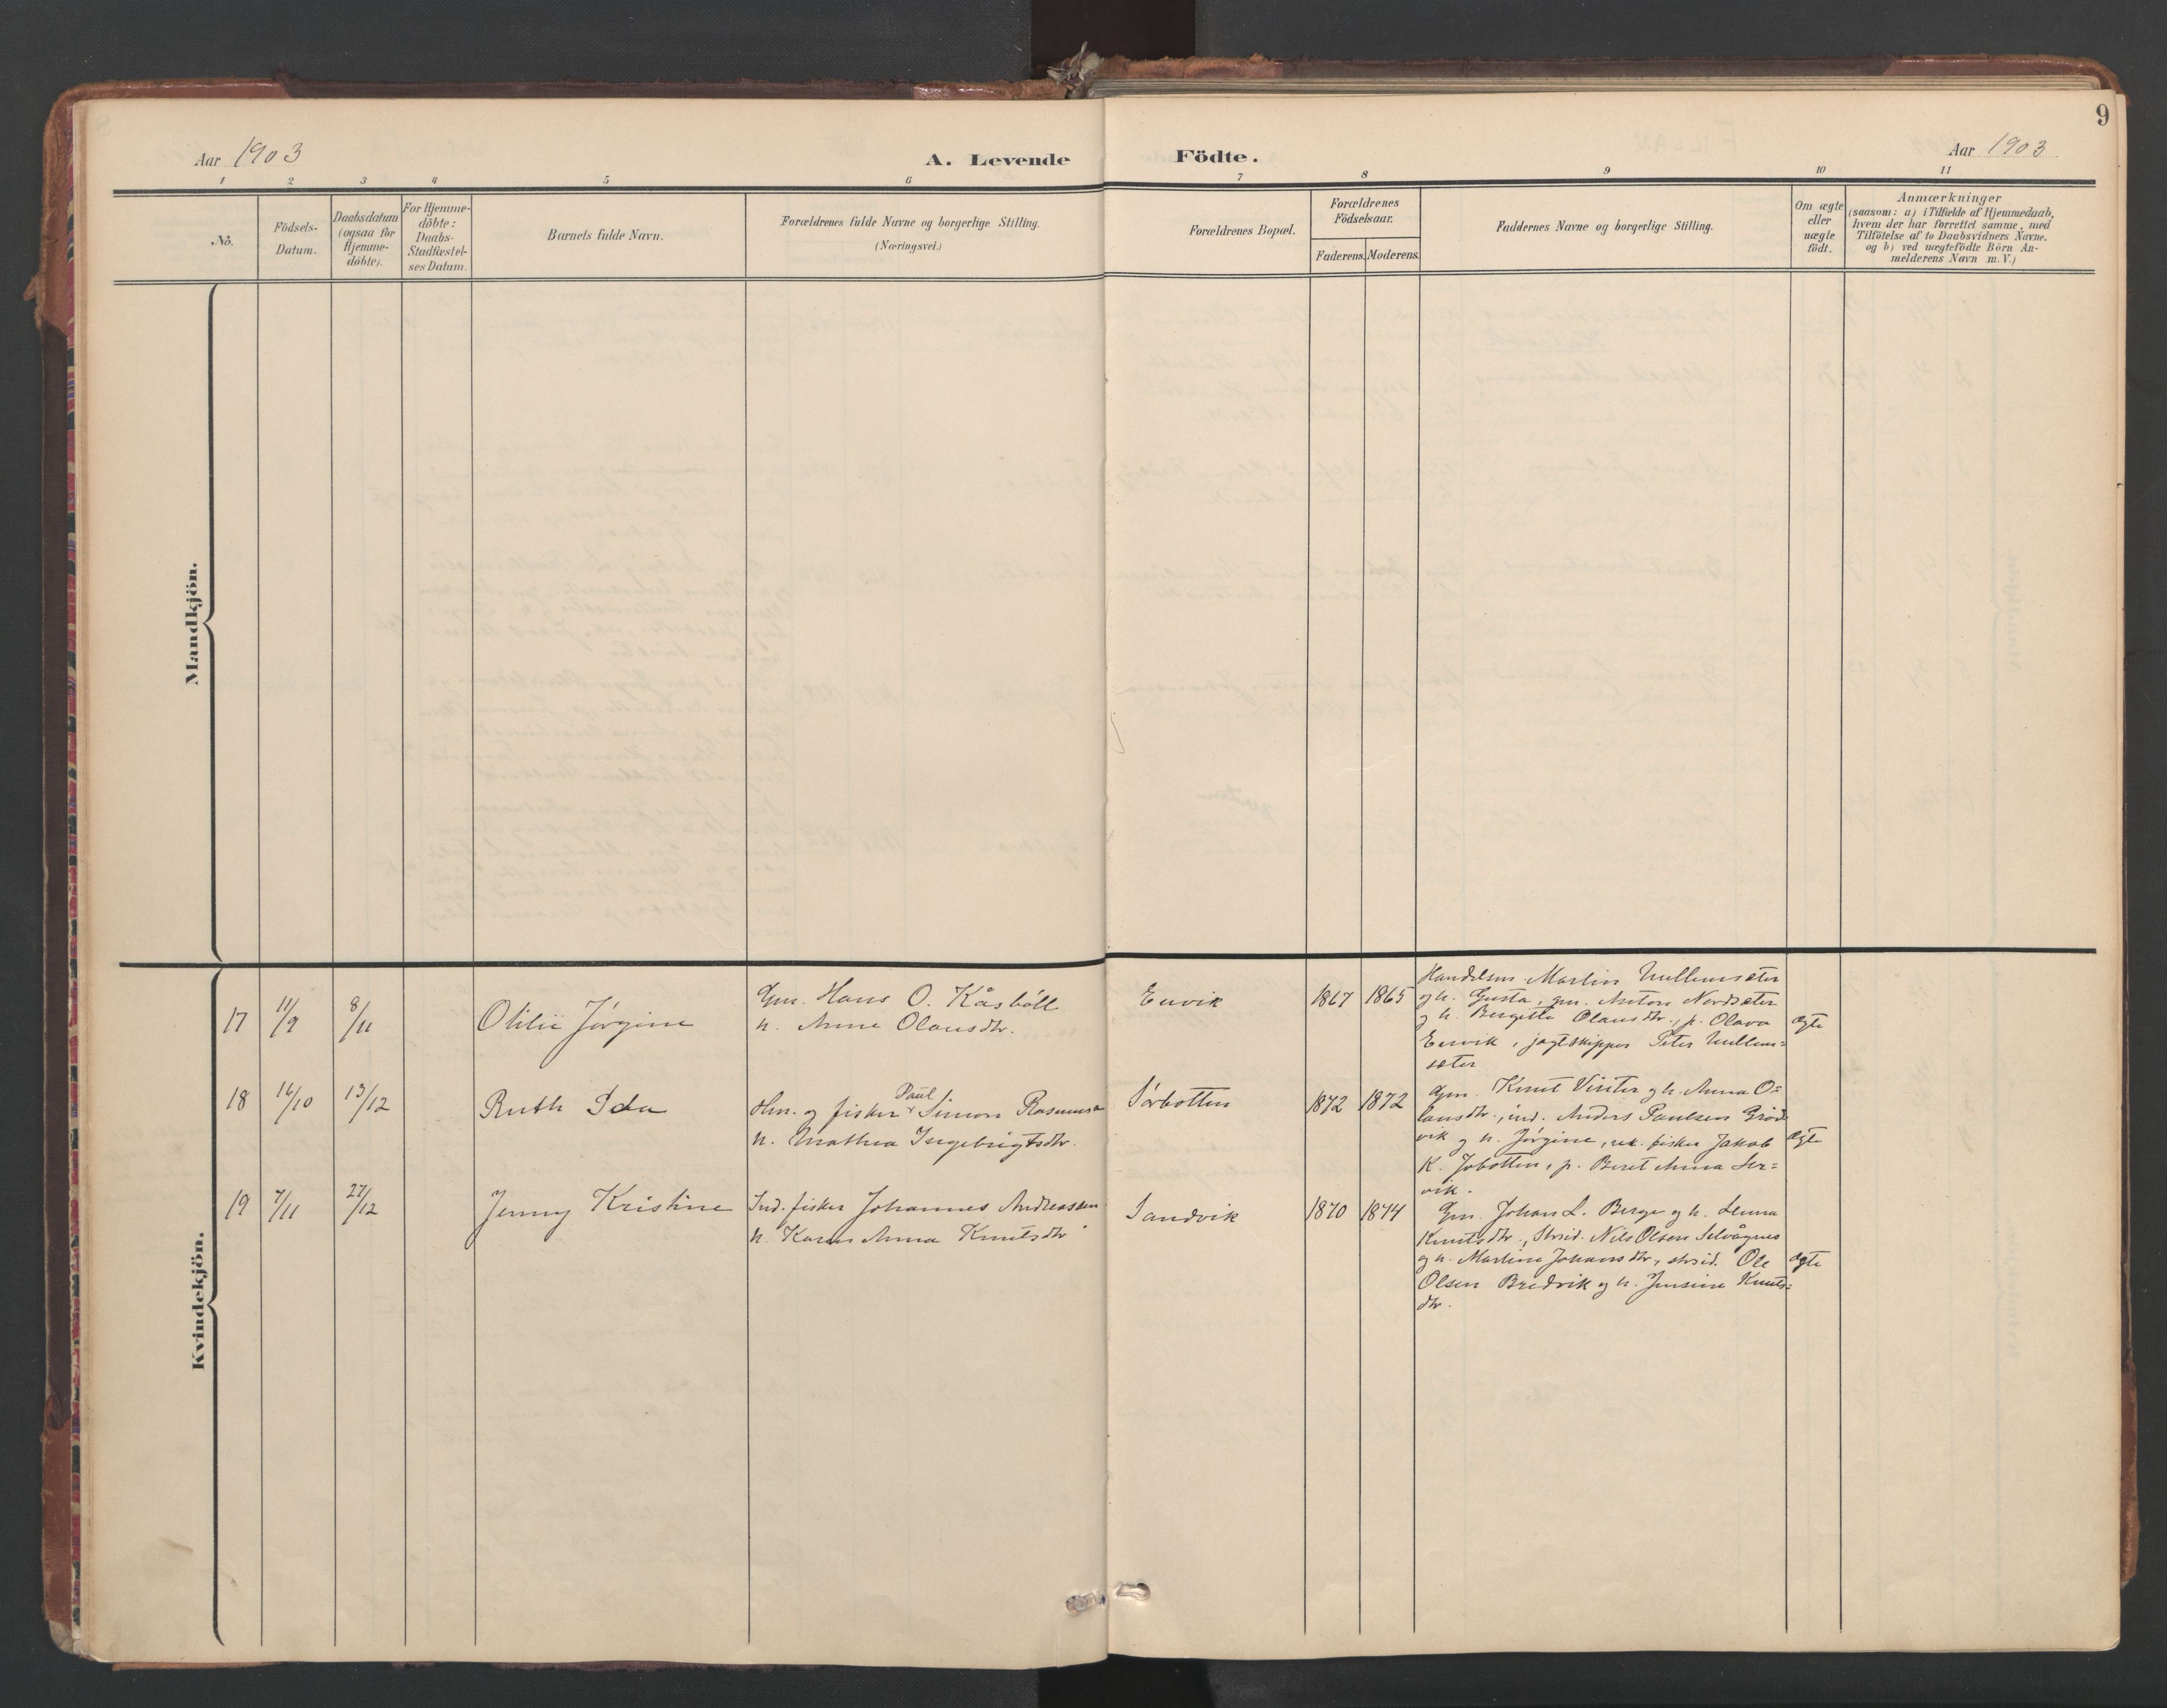 9
Aar 1903
A. Levende Födte.
Aar 1903
1 2 3 4 5 6 7 8 9 10 11
No.
Födsels-
Datum.
Daabsdatum
(ogsaa for
Hjemme-
döbte).
For Hjemme-
döbte:
Daabs-
Stadfæstel-
ses Datum.
Barnets fulde Navn.
Forældrenes fulde Navne og borgerlige Stilling.
(Næringsvei.)
Forældrenes Bopæl.
Forældrenes
Födselsaar.
Faderens. Moderens.
Faddernes Navne og borgerlige Stilling.
Om ægte
eller
uægte
födt.
Anmærkninger
(saasom: a) i Tilfælde af Hjemmedaab,
hvem der har forrettet samme, med
Tilföielse af to Daabsvidners Navne,
og b) ved uægtefödte Börn An-
melderens Navn m. V.)
Mandkjön.
Kvindekjön.
17
11/9
8/11
Otilie Jørgine
Gm. Hans O. Kåsbøll
h. Anne Olausdtr.
Envik
1867
1865
Handelsm. Martin
og h. Gusta, gm. Anton Nordsæter
og h. Bergitte Olausdtr., p. Olava
Envik, jagtskipper Peter
sæter
ægte
18
16/10
13/12
Ruth Ida
Paul
Hm. og fisker Simon Rasmussen
h. Mathea Ingebrigtsdtr.
Sørbotten
1872
1872
Gm. Knut og h. Anna O=
lausdtr., ind. Anders Paulsen
vik og h. Jørgine, uk. fisker Jakob
K. p. Beret Anna
vik.
ægte
19
7/11
27/12
Jenny Kristine
Ind. fisker Johannes Andreassen
h. Karen Anna Knutsdtr
Sandvik
1870
1874
Gm. Johan L. Berge og h.
Knutsdtr., Strsid. Nils Olsen Selvågnes
og h. Martine Johansdtr, strsid. Ole
Olsen Bredvik og h. Jensine Knuts=
dtr.
ægte